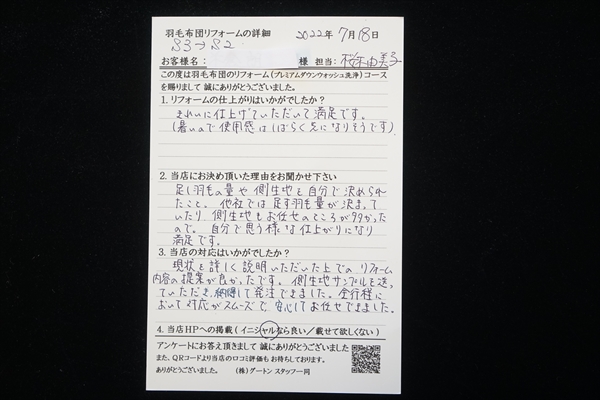 羽毛布団リフォームの詳細 2022年 7月18日
S3→S2
お客様名: 様 担当: 桜木由美子
この度は羽毛布団のリフォーム(プレミアムダウンウォッシュ洗浄)コース
を賜りまして 誠にありがとうございました。
1. リフォームの仕上がりはいかがでしたか?
きれいに仕上げていただいて満足です。
(暑いので使用感はしばらく先になりそうです)
2. 当店にお決め頂いた理由をお聞かせ下さい
足し羽毛の量や側生地を自分で決められ
たこと。他社では足す羽毛量が決まって
いたり、側生地もお任せのところが多かった
ので。自分で思う様な仕上がりになり
満足です。
3. 当店の対応はいかがでしたか?
現状を詳しく説明いただいた上でのリフォーム
内容の提案が良かったです。側生地サンプルを送っ
ていただき、納得して発注できました。全行程に
おいて対応がスムーズで、安心してお任せできました。
4. 当店HPへの掲載(イニシャルなら良い/載せて欲しくない)
アンケートにお答え頂きまして 誠にありがとうございました
また、QRコードより当店の口コミ評価もお待ちしております。
ありがとうございました。 (株)ダートン スタッフ一同